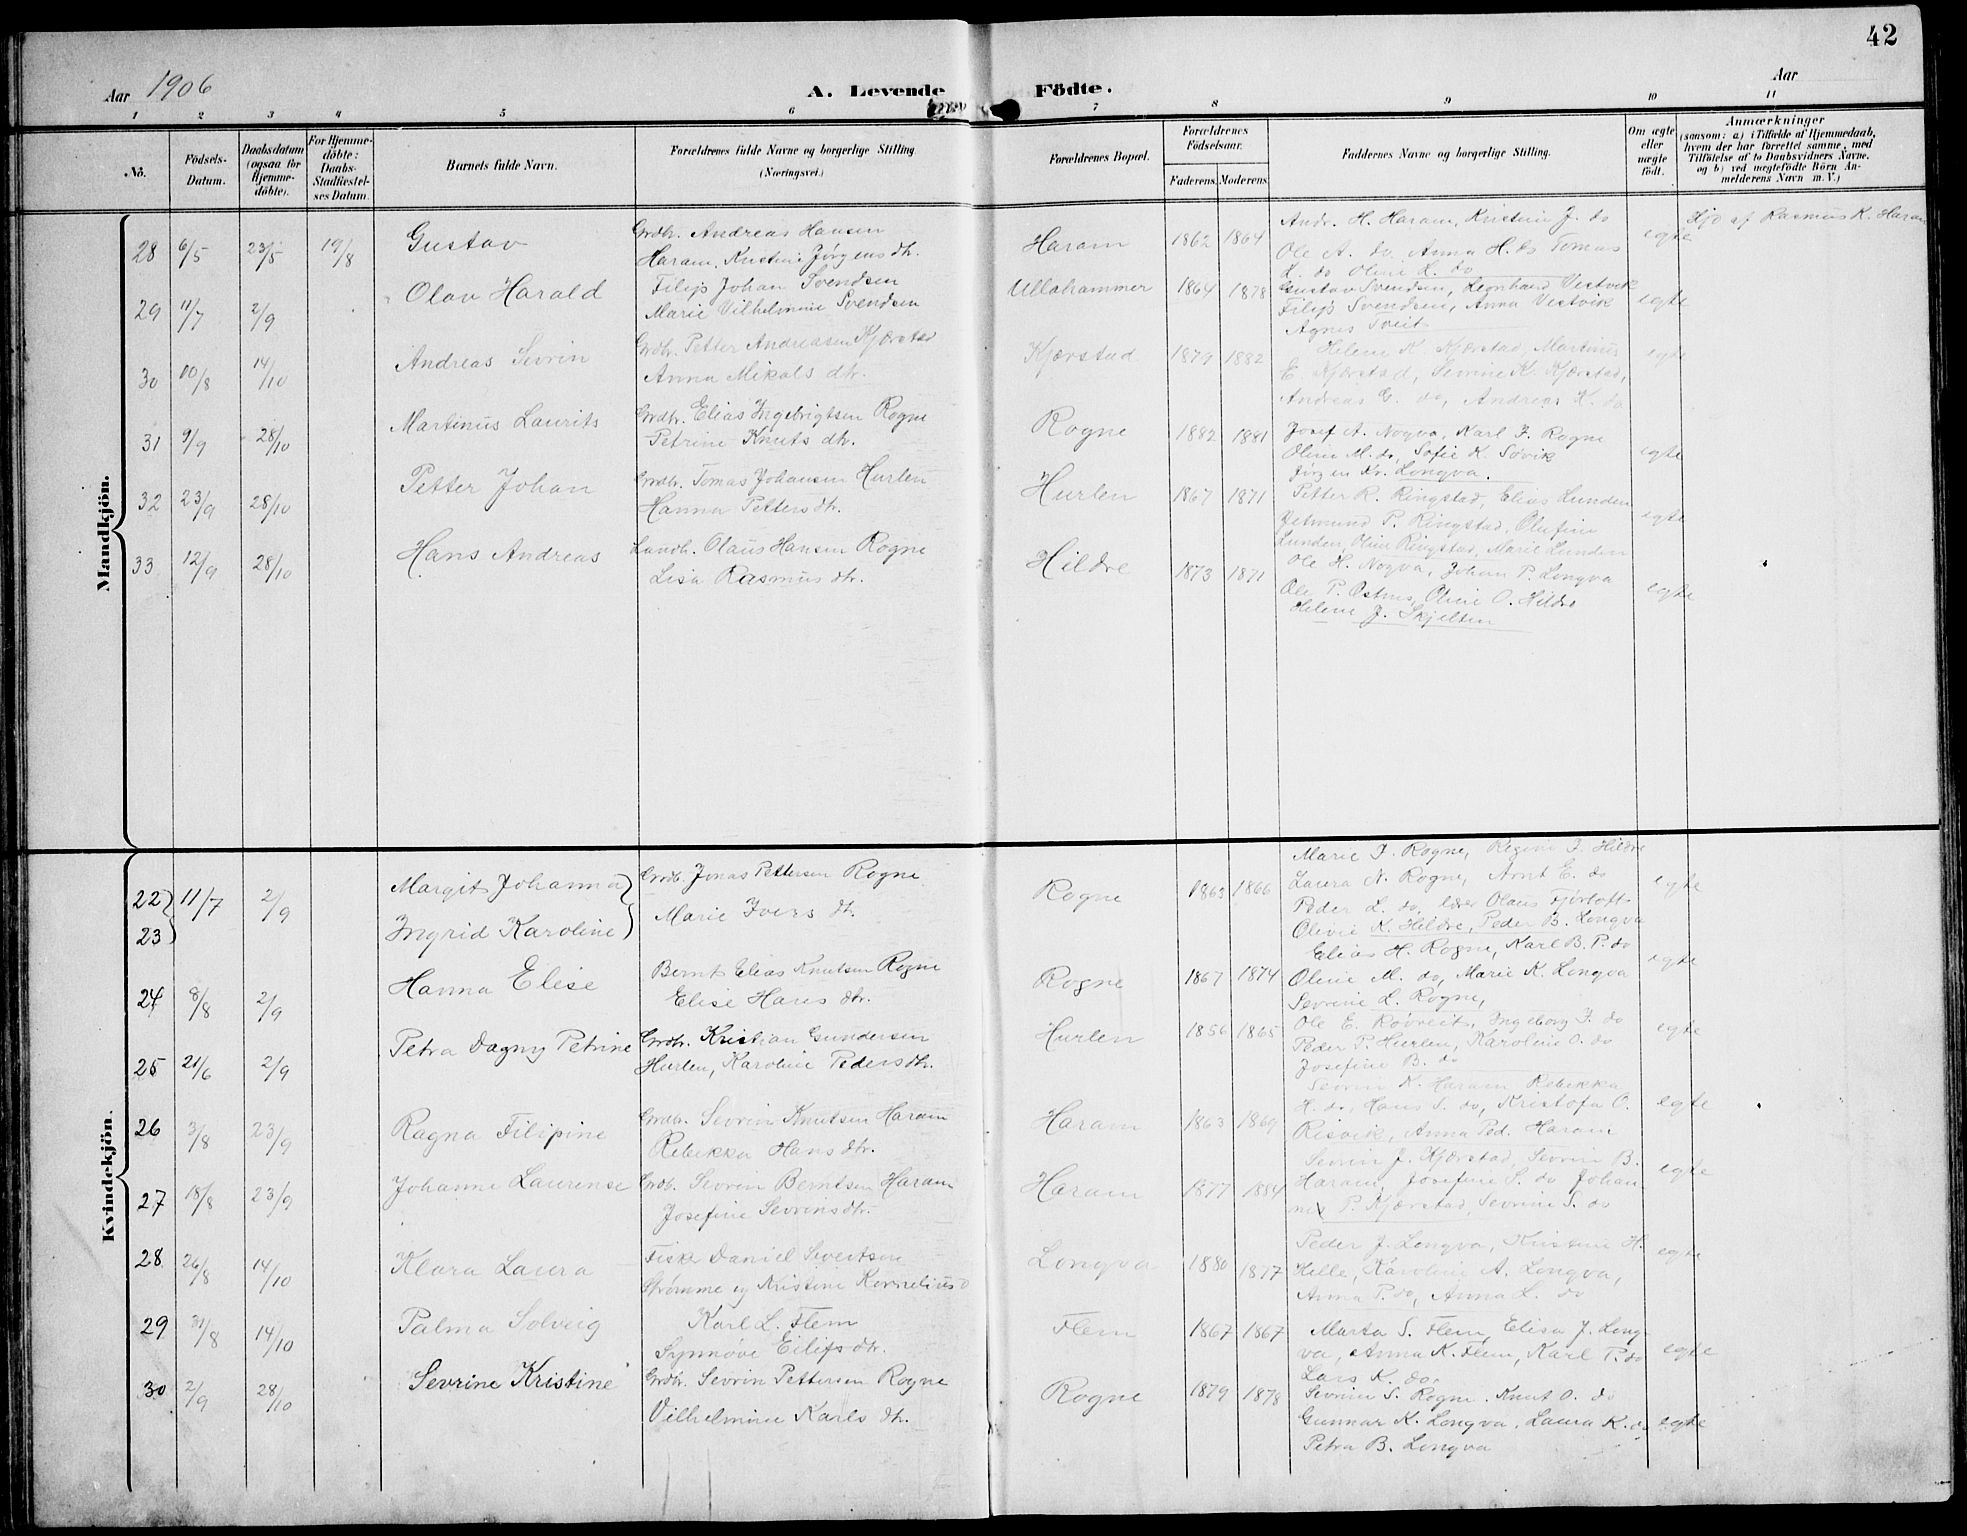 42
Aar 1906
A. Levende Födte.
Aar
1 2 3 4 5 6 7 8 9 10 11
No.
Födsels-Datum.
Daabsdatum (ogsaa for Hjemme-döbte).
For Hjemme-döbte: Daabs-Stadfæstel-ses Datum.
Barnets fulde Navn.
Forældrenes fulde Navne og borgerlige Stilling (Næringsvei.)
Forældrenes Bopæl.
Forældrenes Födselsaar.
Faderens. Moderens.
Faddernes Navne og borgerlige Stilling.
Om ægte eller uægte födt.
Anmærkninger
(saasom: a.) i Tilfælde af Hjemmedaab,
hvem der har forrettet samme, med
Tilföielse af to Daabsvidners Navne.
og b) ved uegtefödte Börn An-
melderens Navn m. V.)
Mandkjön.
28 6/5 23/5 19/8 Gustav
Grdbr. Andreas Hansen
Haram, Kristine Jørgens dtr.
Haram 1862 1864
Andr. H. Haram, Kristine J. do
Ole A. do, Anna H. do Tomas
K. do Oline K. do
egte
Hjd af Rasmus K. Haram
29 11/7 2/9 Olav Harald
Filip Johan Svendsen
Marie Vilhelmine Svendsen
Ullahammer 1864 1878
Gustav Svendsen, Leonhard Vestvik
Filip Svendsen, Anna Vestvik
Agnes Tveit
egte
30 10/8 14/10 Andreas Sevrin
Grdbr. Petter Andreasen Kjærstad
Anna Mikals dtr.
Kjærstad 1879 1882
Helene K. Kjærstad, Martinus
E. Kjærstad, Sevrine K. Kjærstad,
Andreas E. do, Andreas K. do
egte
31 9/9 28/10 Martinus Laurits
Grdbr. Elias Ingebrigtsen Rogne
Petrine Knuts dtr.
Rogne 1882 1881
Josef A. Nogva, Karl J. Rogne
Oline M. do, Sofie K. Søvik
Jørgen Kr. Longva.
egte
32 23/9 28/10 Petter Johan
Grdbr. Tomas Johansen Hurlen
Hanna Petters dtr.
Hurlen 1867 1871
Petter R. Ringstad, Elias Lunden
Jetmund P. Ringstad, Olufine
Lunden, Oline Ringstad, Marie Lunden
egte
33 12/9 28/10 Hans Andreas
Landh. Olaus Hansen Rogne
Lisa Rasmus dtr.
Hildre 1873 1871
Ole H. Nogva, Johan P. Longva
Ole P. Østnes, Oline O. Hildre
Helene J. Skjelten
egte
Kvindekjön.
22 23 11/7 2/9 Margit Johanna
Ingrid Karoline
Grdb. Jonas Pettersen Rogne
Marie Ivers dtr.
Rogne 1863 1866
Marie J. Rogne, Regine J. Hildre
Laura N. Rogne, Arnt E. do
Peder L. do, lærer Olaus Fjørtoft
Olivie K. Hildre, Peder B. Longva
egte
24 8/8 2/9 Hanna Elise
Bernt Elias Knutsen Rogne
Elise Hans dtr.
Rogne 1867 1874
Elias H. Rogne, Karl B. P. do
Oline M. do, Marie K. Longva
Sevrine L. Rogne,
egte
25 21/6 2/9 Petra Dagny Petrine
Grdbr. Kristian Gundersen
Hurlen, Karoline Peders dtr.
Hurlen 1856 1865
Ole E. Røvreit, Ingeborg J. do
Peder P. Hurlen, Karoline O. do
Josefine B. do
egte
26 3/8 23/9 Ragna Filipine
Grdbr. Sevrin Knutsen Haram
Rebekka Hans dtr.
Haram 1863 1869
Sevrin K. Haram, Rebekka
H. do, Hans S. do, Kristofa O.
Risvik, Anna Ped. Haram
egte
27 18/8 23/9 Johanne Laurense
Grdb. Sevrin Berntsen Haram
Josefine Sevrins dtr.
Haram 1877 1884
Sevrin J. Kjærstad, Sevrin B.
Haram, Josefine S. do Johan-
nes P. Kjærstad, Sevrine S. do
egte
28 26/8 14/10 Klara Laura
Fisker Daniel Sivertsen
Strømme og Kristine Kornelius d
Longva 1880 1877
Peder J. Longva, Kristine H.
Helle, Karoline A. Longva,
Anna P. do, Anna L. do
egte
29 31/8 14/10 Palma Solveig
Karl L. Flem
Synnøve Eilifs dtr.
Flem 1867 1867
Marta S. Flem, Elisa J. Long-
va, Anna K. Flem, Karl P. do
Lars K. do.
egte
30 2/9 28/10 Sevrine Kristine
Grdbr. Sevrin Pettersen Rogne
Vilhelmine Karls dtr.
Rogne 1879 1878
Sevrine S. Rogne, Knut O. do
Gunnar K. Longva, Laura K. do
Petra B. Longva
egte